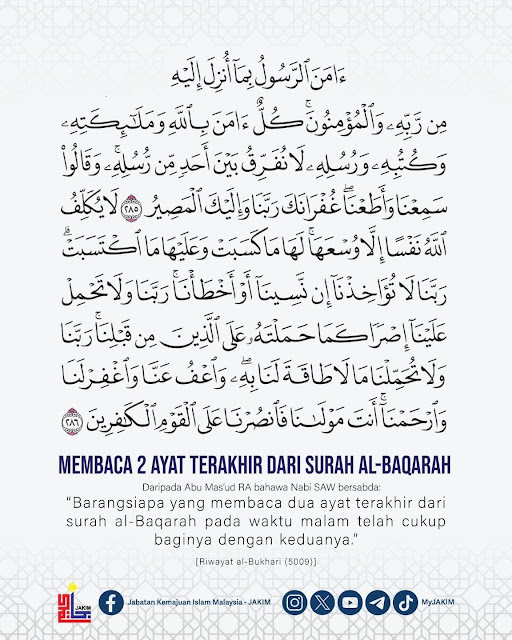 ءَامَنَ ٱلرَّسُولُ بِمَآ أُنزِلَ إِلَيْهِ
مِن رَّبِّهِۦ وَٱلْمُؤْمِنُونَۚ كُلٌّ ءَامَنَ بِٱللَّهِ وَمَلَٰٓئِكَتِهِۦ
وَكُتُبِهِۦ وَرُسُلِهِۦ لَا نُفَرِّقُ بَيْنَ أَحَدٍ مِّن رُّسُلِهِۦۚ وَقَالُوا۟
سَمِعْنَا وَأَطَعْنَاۖ غُفْرَانَكَ رَبَّنَا وَإِلَيْكَ ٱلْمَصِيرُ ٢٨٥ لَا يُكَلِّفُ
ٱللَّهُ نَفْسًا إِلَّا وُسْعَهَاۚ لَهَا مَا كَسَبَتْ وَعَلَيْهَا مَا ٱكْتَسَبَتْۗ
رَبَّنَا لَا تُؤَاخِذْنَآ إِن نَّسِينَآ أَوْ أَخْطَأْنَاۚ رَبَّنَا وَلَا تَحْمِلْ
عَلَيْنَآ إِصْرًا كَمَا حَمَلْتَهُۥ عَلَى ٱلَّذِينَ مِن قَبْلِنَاۚ رَبَّنَا
وَلَا تُحَمِّلْنَا مَا لَا طَاقَةَ لَنَا بِهِۦۖ وَٱعْفُ عَنَّا وَٱغْفِرْ لَنَا
وَٱرْحَمْنَآۚ أَنتَ مَوْلَىٰنَا فَٱنصُرْنَا عَلَى ٱلْقَوْمِ ٱلْكَٰفِرِينَ ٢٨٦
MEMBACA 2 AYAT TERAKHIR DARI SURAH AL-BAQARAH
Daripada Abu Mas'ud RA bahawa Nabi SAW bersabda:
“Barangsiapa yang membaca dua ayat terakhir dari
surah al-Baqarah pada waktu malam telah cukup
baginya dengan keduanya.”
[Riwayat al-Bukhari (5009)]
JAKIM Jabatan Kemajuan Islam Malaysia - JAKIM MyJAKIM